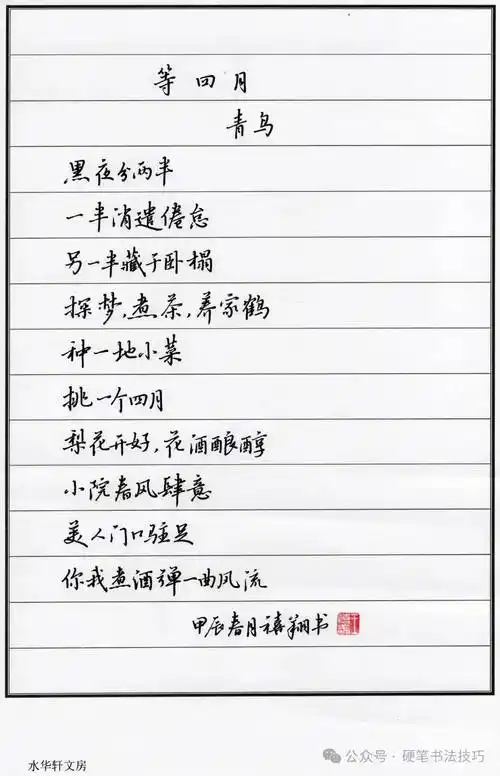 等四月
青鸟
黑夜分两半
一半消遣倦怠
另一半藏于卧榻
探梦,煮茶,养家鹤
种一地小菜
挑一个四月
梨花开好,花酒酿醇
小院春风肆意
美人门口驻足
你我煮酒弹一曲风流
甲辰春月禧翔书
水华轩文房
公众号·硬笔书法技巧